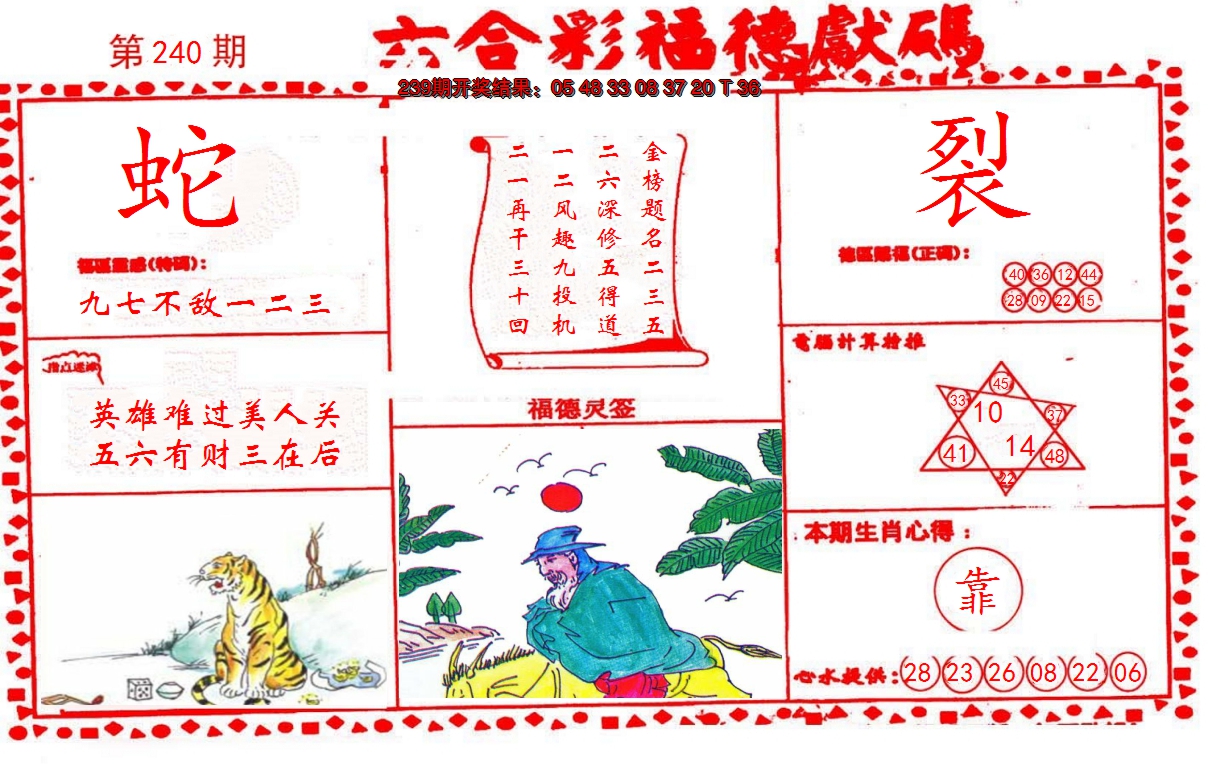 第 240 期
六合彩福德獻碼
239期开奖结果：05 48 33 08 37 20 T 36
蛇
福區靈感(特碼)：
九七不敌一二三
指点迷津
英雄难过美人关
五六有财三在后
金榜题名二三五
二六深修五得道
一二风趣九投机
二一再干三十回
福德灵签
裂
德區賜福(正碼)：
40 36 12 44
28 09 22 15
電腦計算推
45
33
10
37
41
14
48
22
本期生肖心得：
靠
心水提供：28 23 26 08 22 06